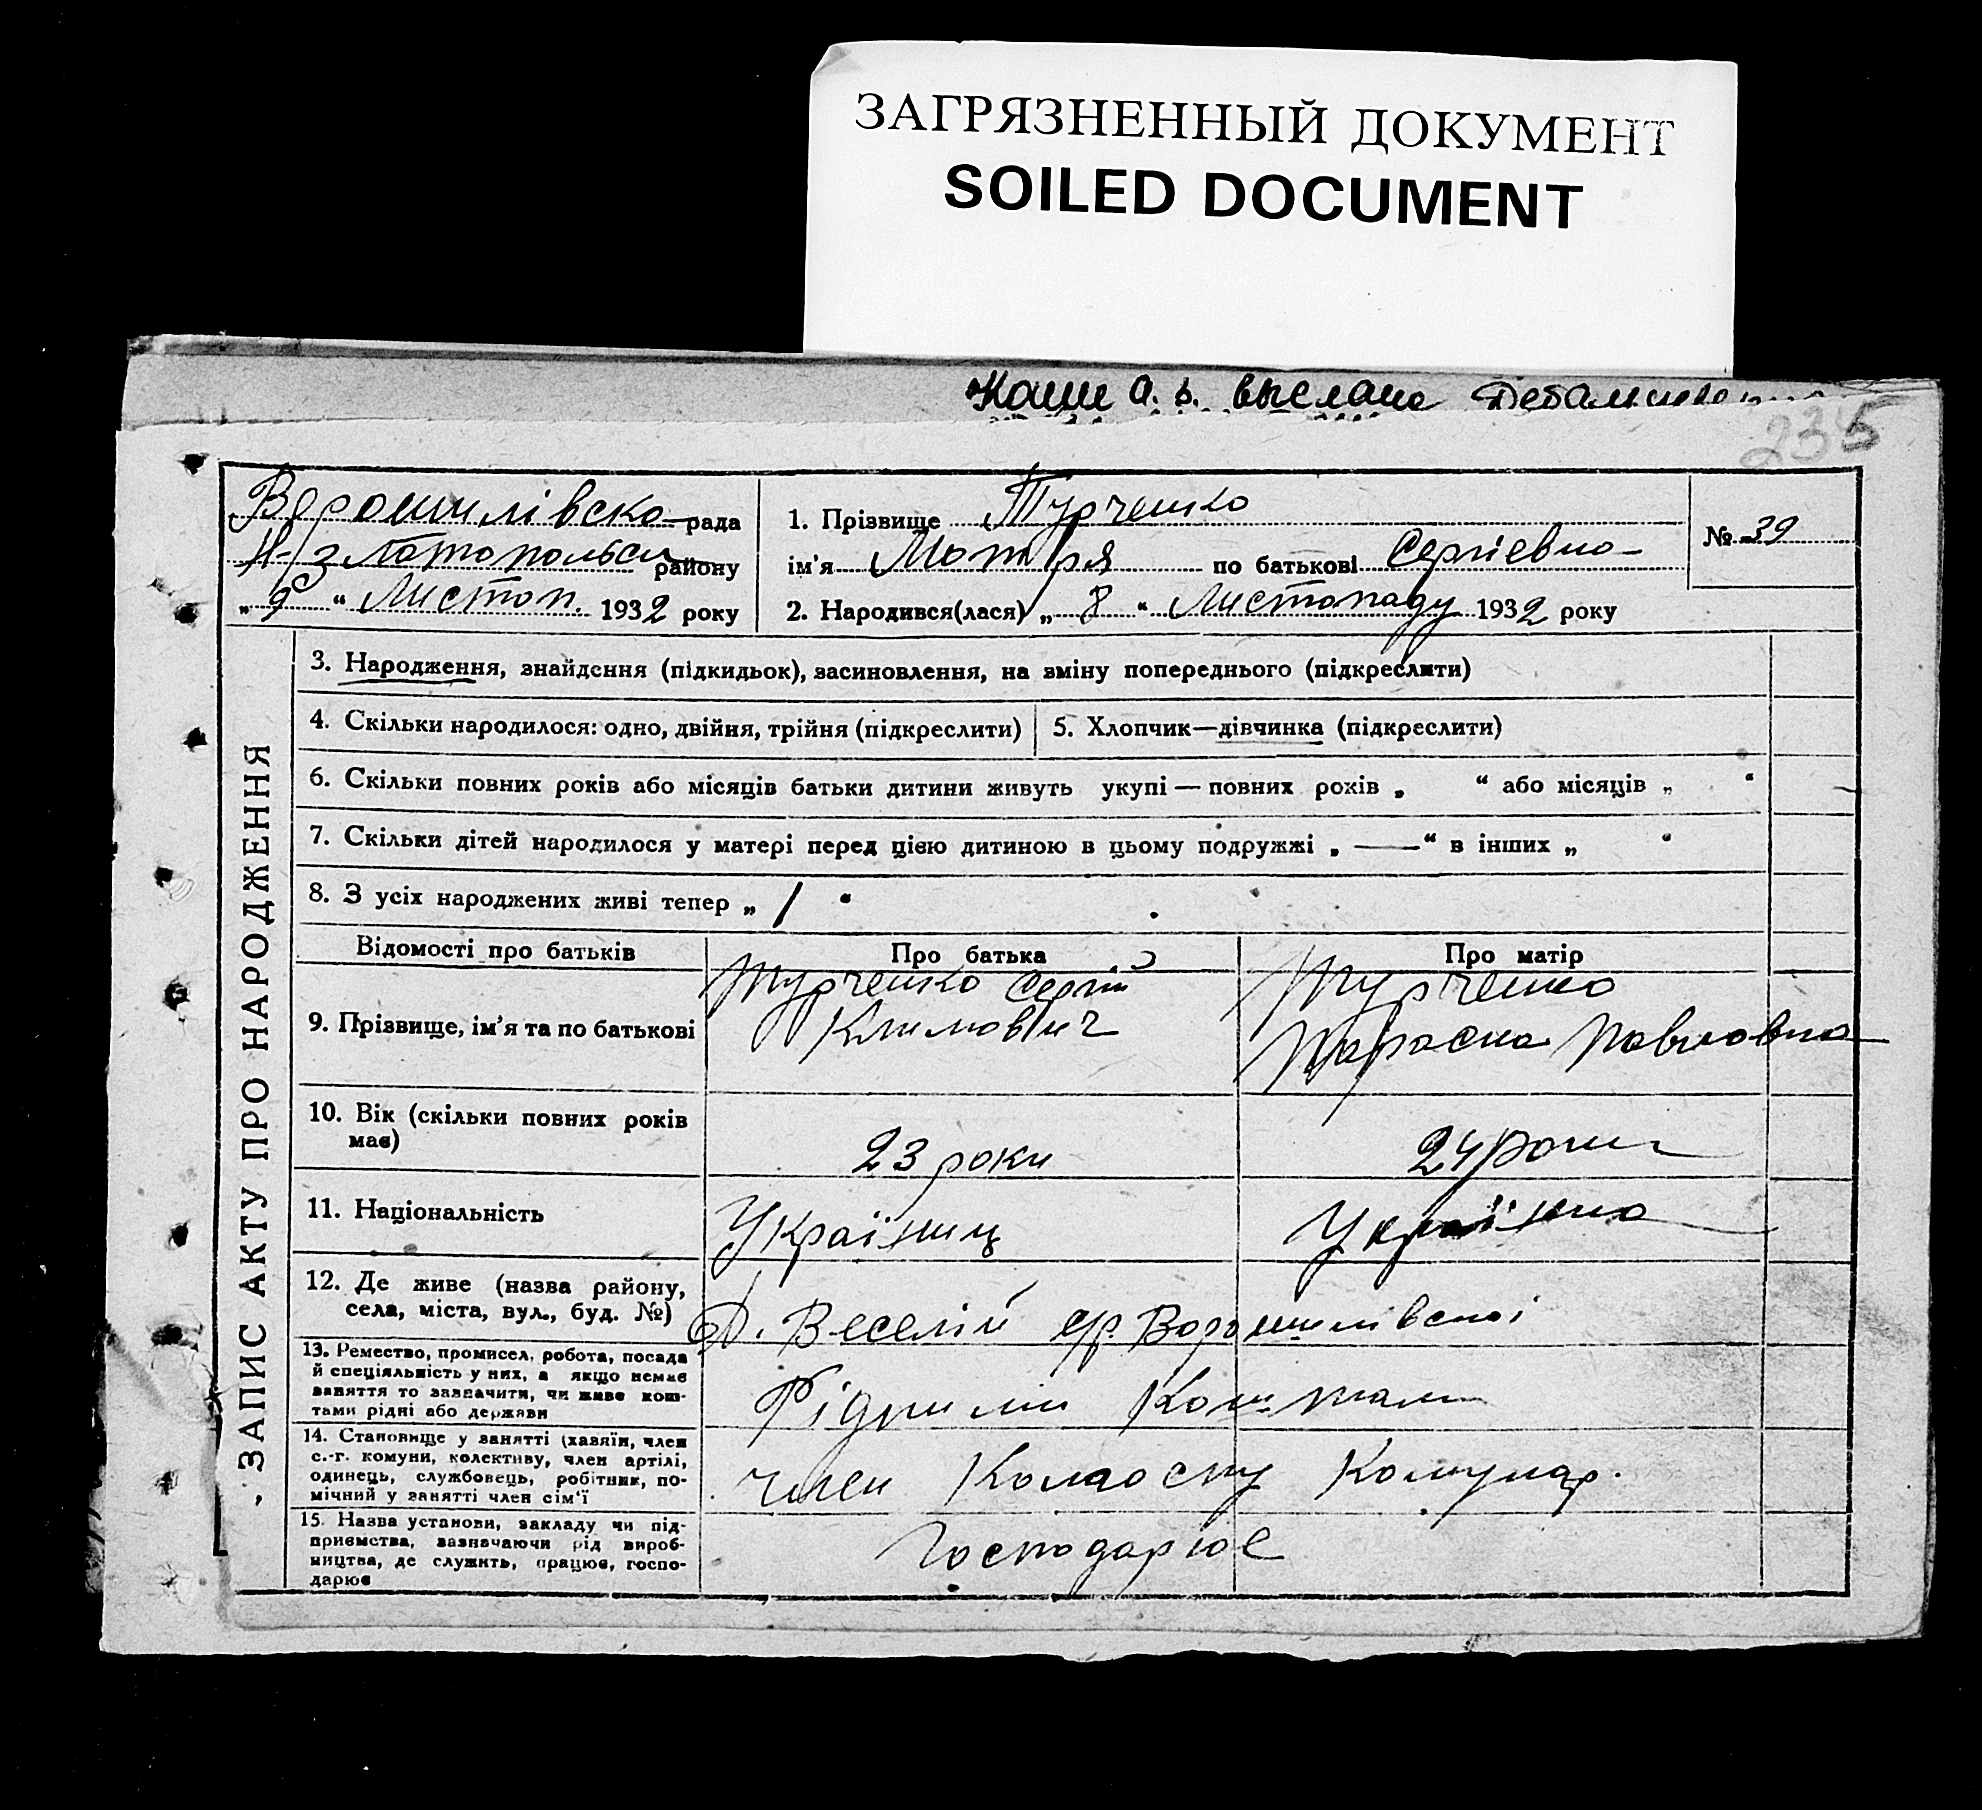 ЗАГРЯЗНЕННЫЙ ДОКУМЕНТ
SOILED DOCUMENT
а. з. выслана
235
Ворошилівска рада
Н-Златопольськ району
„ 9 “ Листоп. 1932 року
1. Прізвище Турченко
ім'я Мотря по батькові Сергіевна
2. Народився(лася) „ 8 “ Листопаду 1932 року
№ 39
ЗАПИС АКТУ ПРО НАРОДЖЕННЯ
3. Народження, знайдення (підкидьок), засиновлення, на зміну попереднього (підкреслити)
4. Скільки народилося: одно, двійня, трійня (підкреслити)
5. Хлопчик—дівчинка (підкреслити)
6. Скільки повних років або місяців батьки дитини живуть укупі — повних років „ “ або місяців „ “
7. Скільки дітей народилося у матері перед цією дитиною в цьому подружжі „ — “ в інших „ “
8. З усіх народжених живі тепер „ 1 “
Відомості про батьків
Про батька
Про матір
9. Прізвище, ім'я та по батькові
Турченко Сергій
Климович
Турченко
Параска Павловна
10. Вік (скільки повних років
має)
23 роки
24 роки
11. Національність
Україниць
Українка
12. Де живе (назва району,
села, міста, вул., буд. №)
Веселій с/р. Ворошилівскоі
13. Ремество, промисел, робота, посада
й спеціяльність у них, а якщо немає
заняття то зазначити, чи живе кош-
тами рідні або держави
Рідними Коштами
14. Становище у занятті (хазяїн, член
с.-г. комуни, колективу, член артілі,
одинець, службовець, робітник, по-
мічний у занятті член сім'ї
член Колгоспу Комунар.
15. Назва установи, закладу чи під-
приємства, зазначаючи рід вироб-
ництва, де служить, працює, госпо-
дарює
Господарює